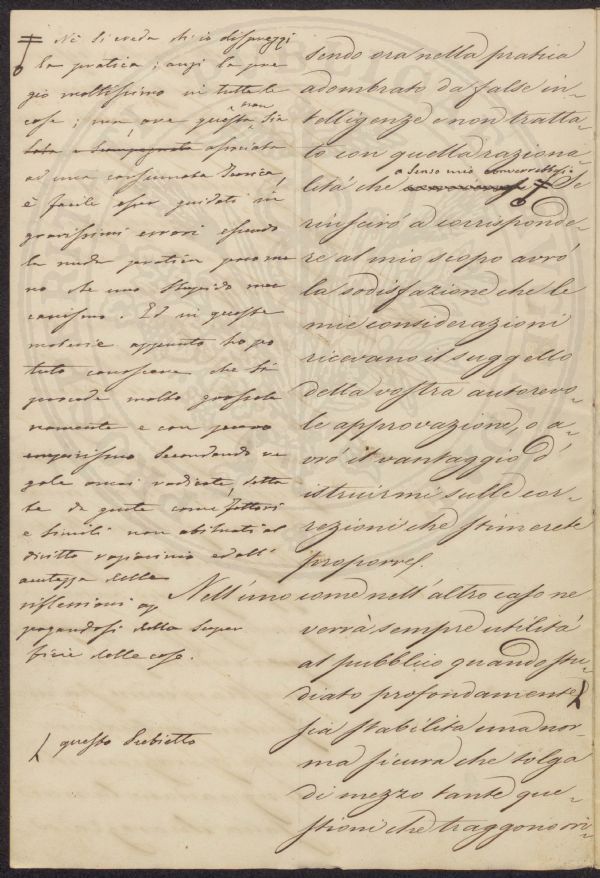 Nè si creda ch'io disprezzi
la pratica; anzi la pre
gio moltissimo in tutte le
cose; ma ove questa non sia
associata
ad una consumata teorica,
è facile esser guidati in
gravissimi errori essendo
la nuda pratica poco me
no che uno stupido mec
canismo. Ed in queste
materie appunto ho po
tuto conoscere che si
procede molto grossola
namente e con
empirismo secondando re
gole omai radicate, dette
te da gente come fattori
e simili non abituati al
diritto raziocinio ed all'
autezza delle
riflessioni ap
pagandosi della super
ficie delle cose.
questo subietto
sendo ora nella pratica
adombrato da false in-
telligenze e non tratta-
to con quella raziona-
a senso mio converrebbesi
lità che Se
riuscirò a corrisponde-
re al mio scopo avrò
la sodisfazione che le
mie considerazioni
ricevano il suggello
della vostra autorevo-
le approvazione, o a-
vrò il vantaggio d'
istruirmi sulle cor-
rezioni che stimerete
proporre.
Nell'uno come nell'altro caso ne
verrà sempre utilità
al pubblico quando stu-
diato profondamente
sia stabilita una nor-
ma sicura che tolga
di mezzo tante que-
stioni che traggono ori-